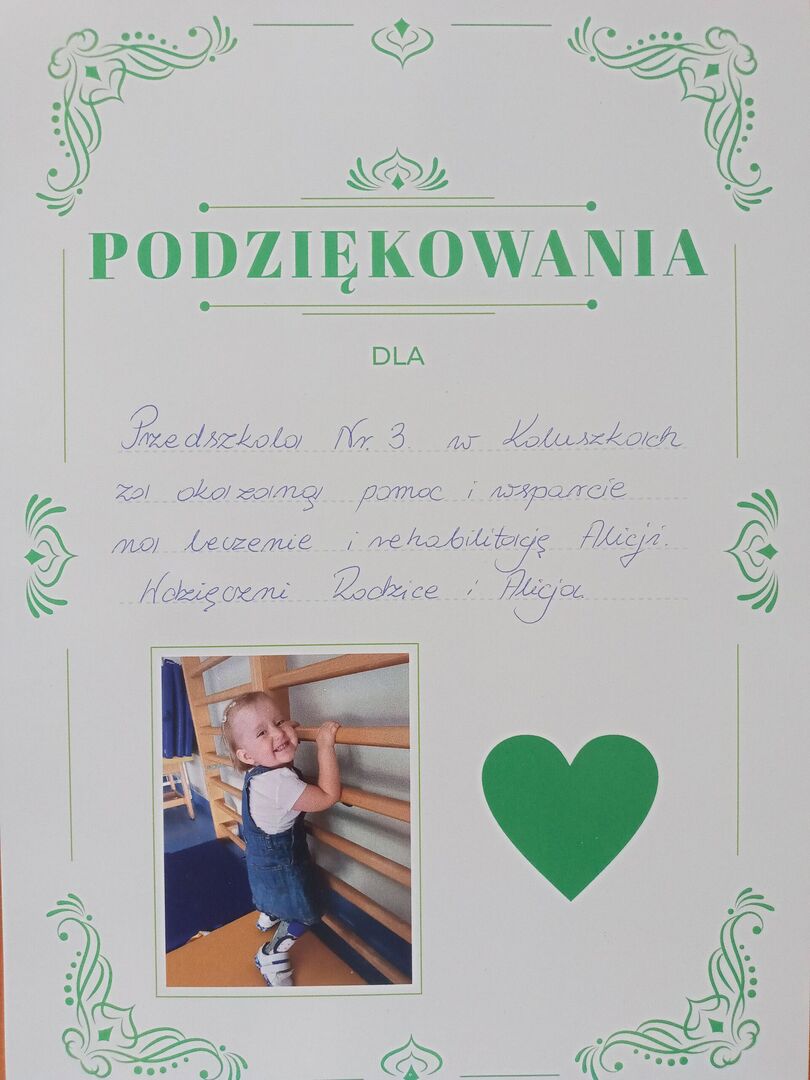 PODZIĘKOWANIA
DLA
Przedszkola Nr. 3 w Koluszkach
za okazaną pomoc i wsparcie
na leczenie i rehabilitację Alicji.
Wdzięczni Rodzice i Alicja